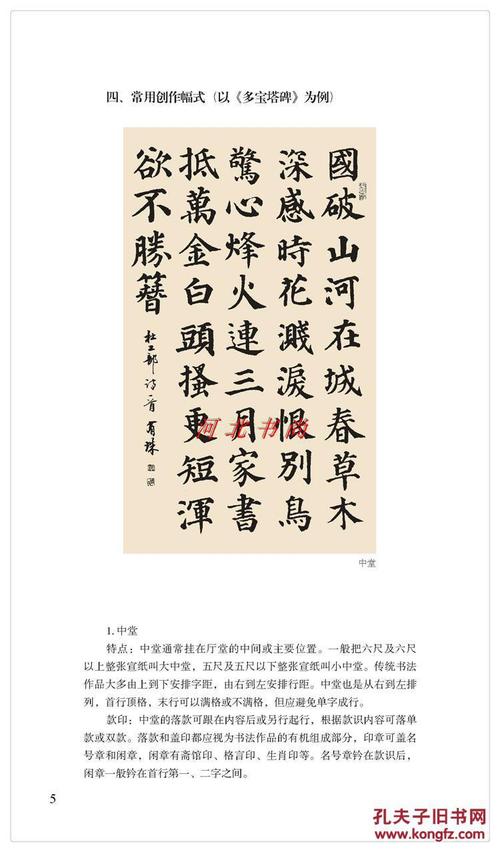 四、常用创作幅式（以《多宝塔碑》为例）
國破山河在城春草木
深感時花濺淚恨别鳥
驚心烽火連三月家書
抵萬金白頭搔更短渾
欲不勝簪
杜工部诗一首
河北书尚
中堂
1.中堂
特点：中堂通常挂在厅堂的中间或主要位置。一般把六尺及六尺
以上整张宣纸叫大中堂，五尺及五尺以下整张宣纸叫小中堂。传统书法
作品大多由上到下安排字距，由右到左安排行距。中堂也是从右到左排
列，首行顶格，末行可以满格或不满格，但应避免单字成行。
款印：中堂的落款可跟在内容后或另行起行，根据款识内容可落单
款或双款。落款和盖印都应视为书法作品的有机组成部分，印章可盖名
号章和闲章，闲章有斋馆印、格言印、生肖印等。名号章钤在款识后，
闲章一般钤在首行第一、二字之间。
5
孔夫子旧书网
www.kongfz.com